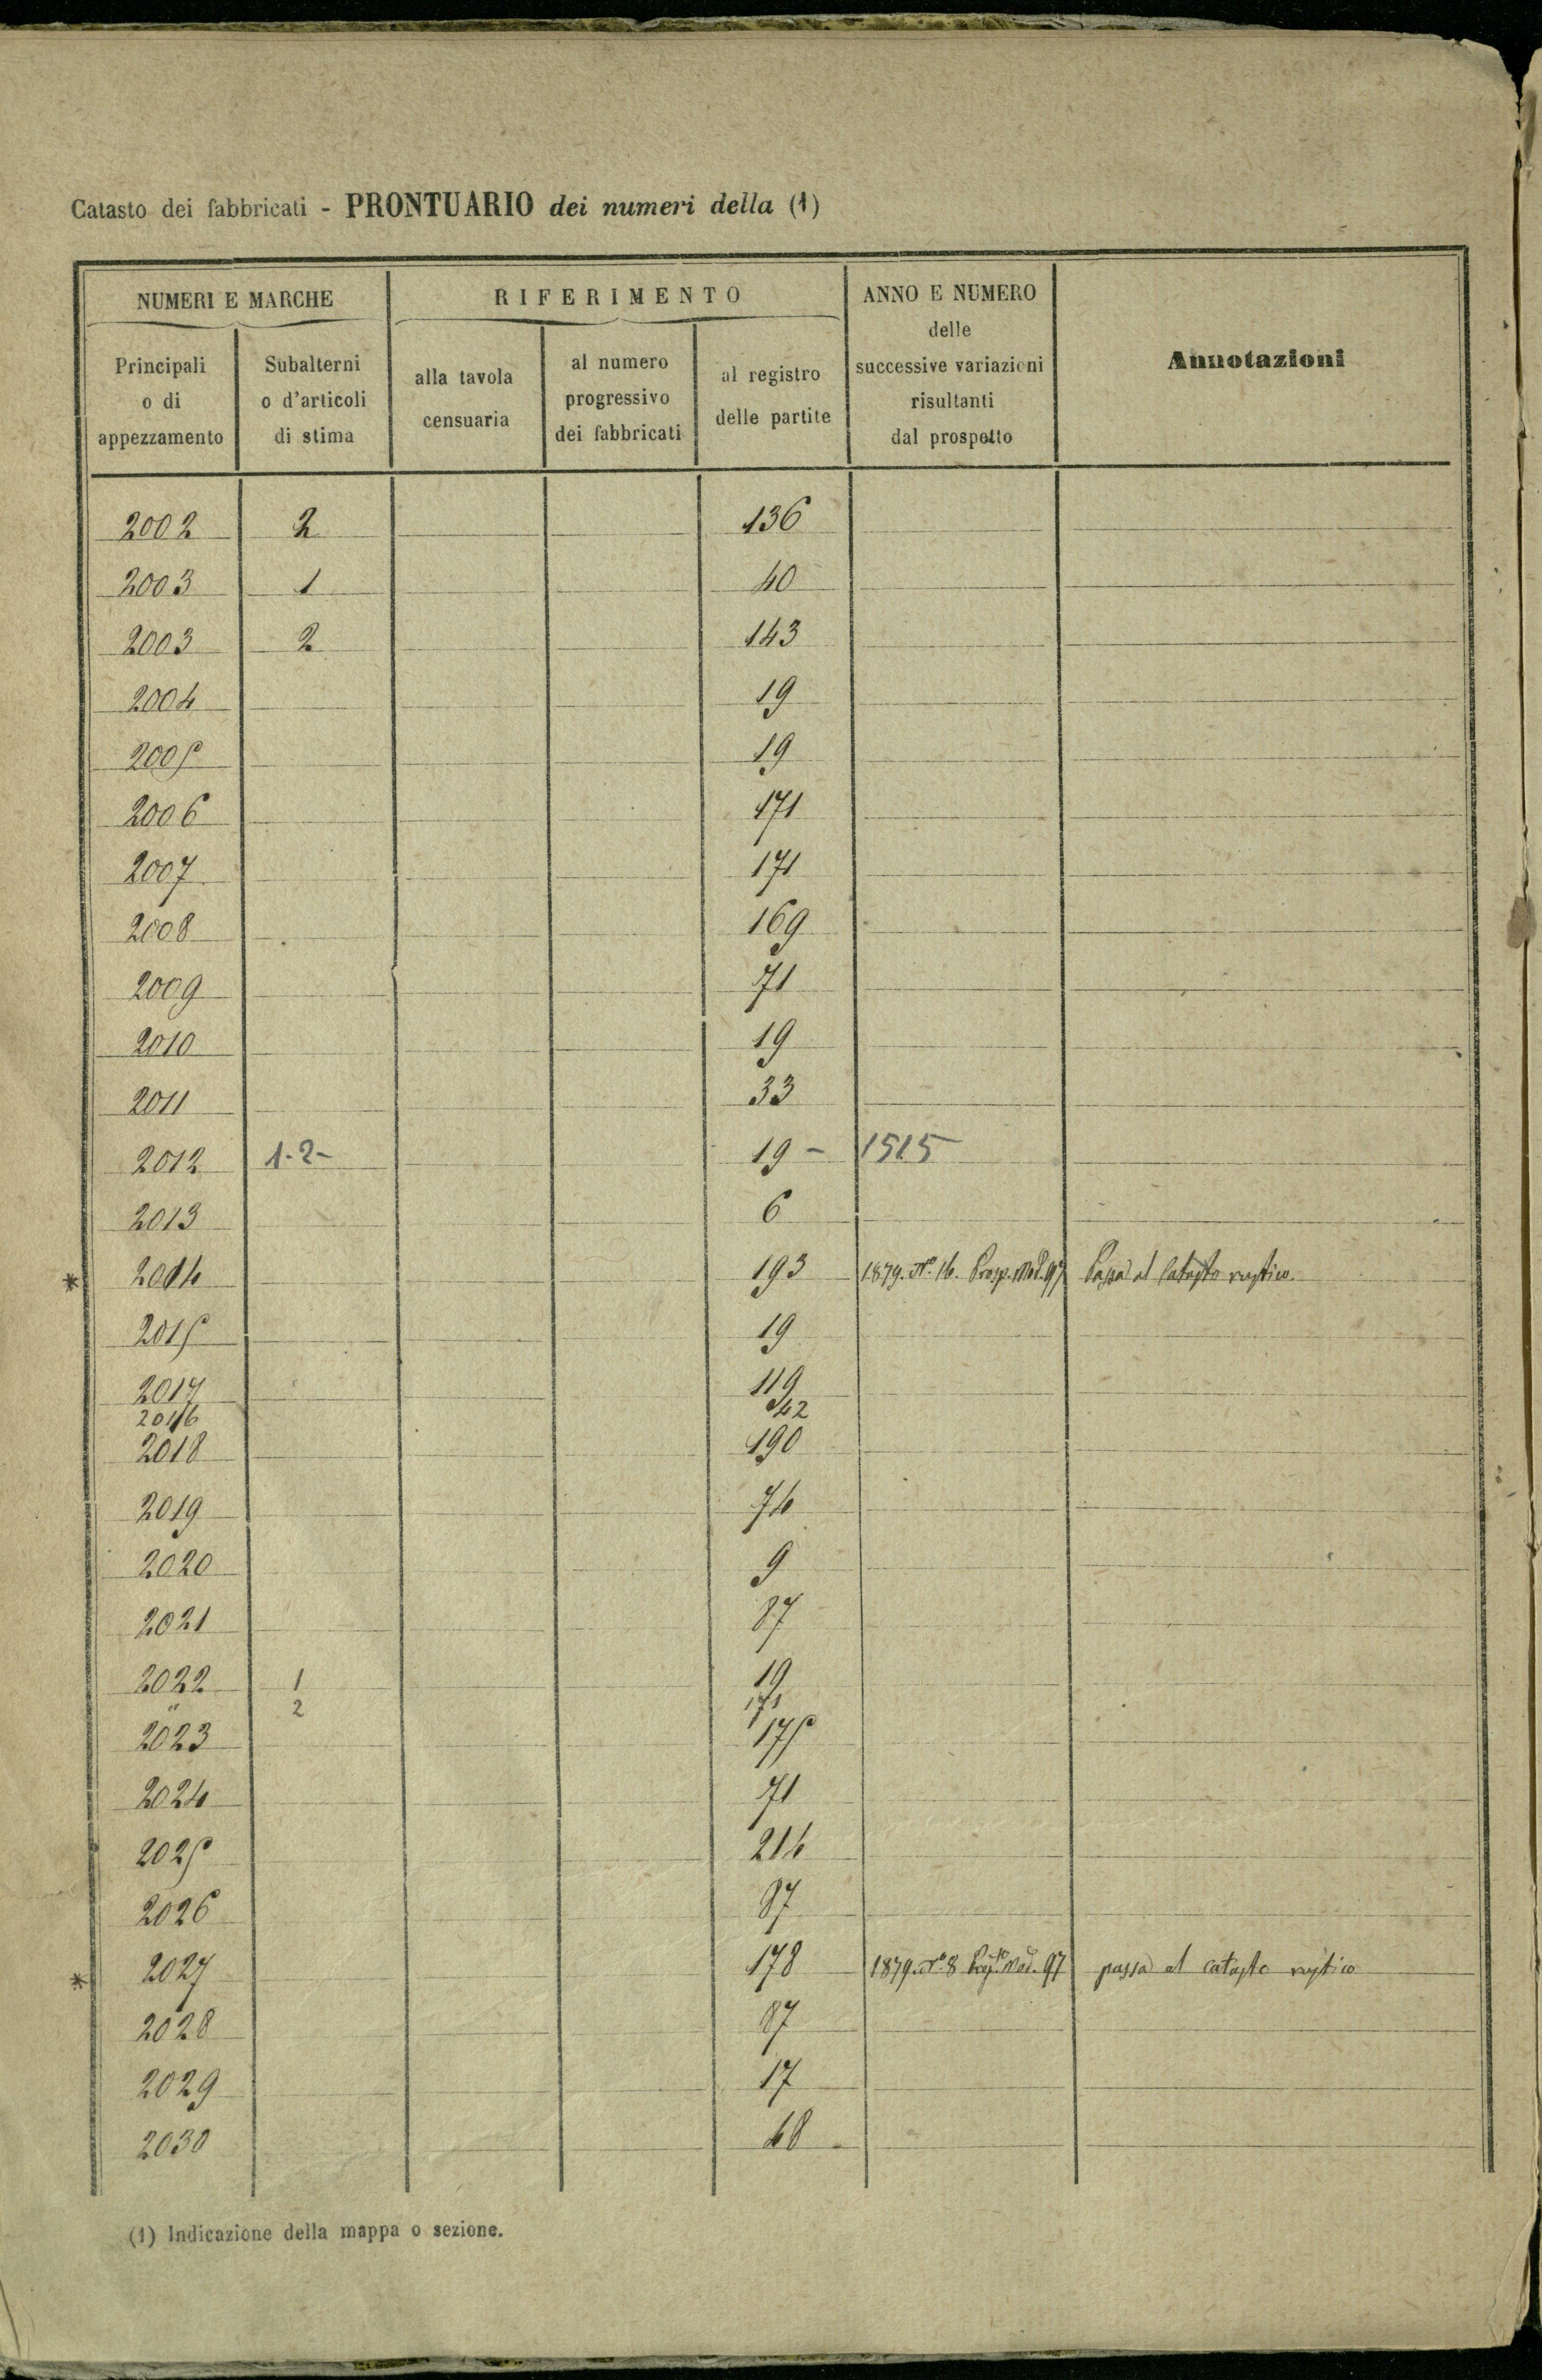 Catasto dei fabbricati - PRONTUARIO dei numeri della (1)
NUMERI E MARCHE RIFERIMENTO ANNO E NUMERO delle successive variazioni risultanti dal prospetto Annotazioni
Principali o di appezzamento Subalterni o d'articoli di stima alla tavola censuaria al numero progressivo dei fabbricati al registro delle partite
2002 2 136
2003 1 40
2003 2 143
2004 19
2005 19
2006 171
2007 171
2008 169
2009 71
2010 19
2011 33
2012 1-2- 19 - 1515
2013 6
* 2014 193 1879. N.° 16. Prosp. Mod. 97 Passa al Catasto rustico.
2015 19
2017 119
2016 42
2018 190
2019 74
2020 9
2021 87
2022 1 19
" 2 171
2023 175
2024 71
2025 214
2026 87
* 2027 178 1879. N.° 8 Mod. 97 passa al catasto rustico
2028 87
2029 17
2030 48
(1) Indicazione della mappa o sezione.